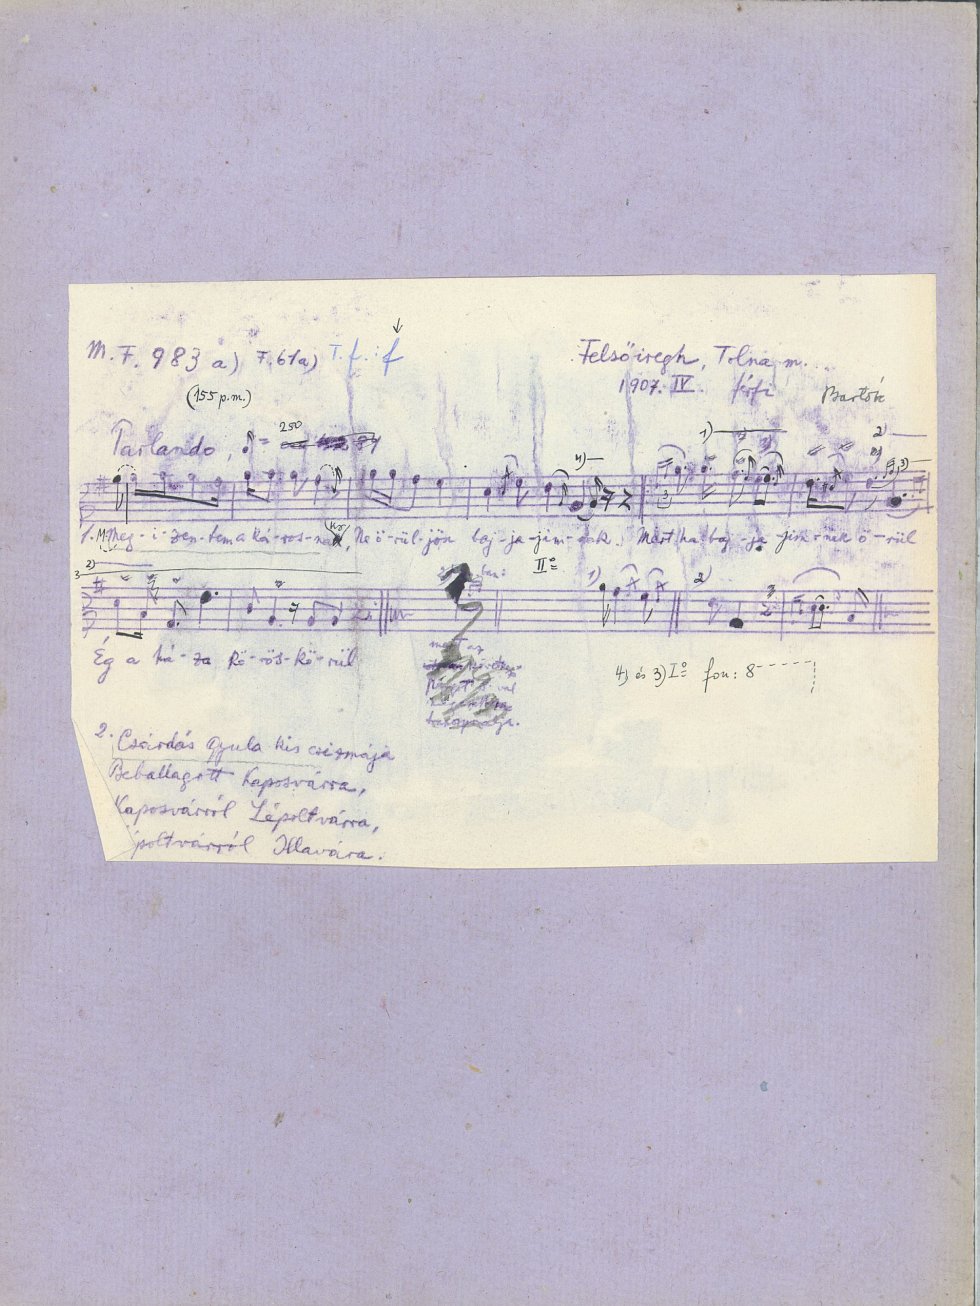 M. F. 983 a) F. 61a) T. f. : f
Felsőiregh, Tolna m.
1907. IV. férfi Bartók
(155 p.m.)
Parlando, = 250
1) 2)
4)
1. Meg-i-zen-tem a ká-ros-nak, Ne ö-rül-jön baj-ja-jim-nak. Mert ha baj-ja-jim-nak ö-rül
3 2)
II º= 1) 2)
Ég a há-za kö-rös-kö-rül
mert az
4) és 3) I º= fon: 8
2. Csárdás Gyula kis csizmája
Beballagott Kaposvárra,
Kaposvárról Lépoltvárra,
poltvárról Illavára.